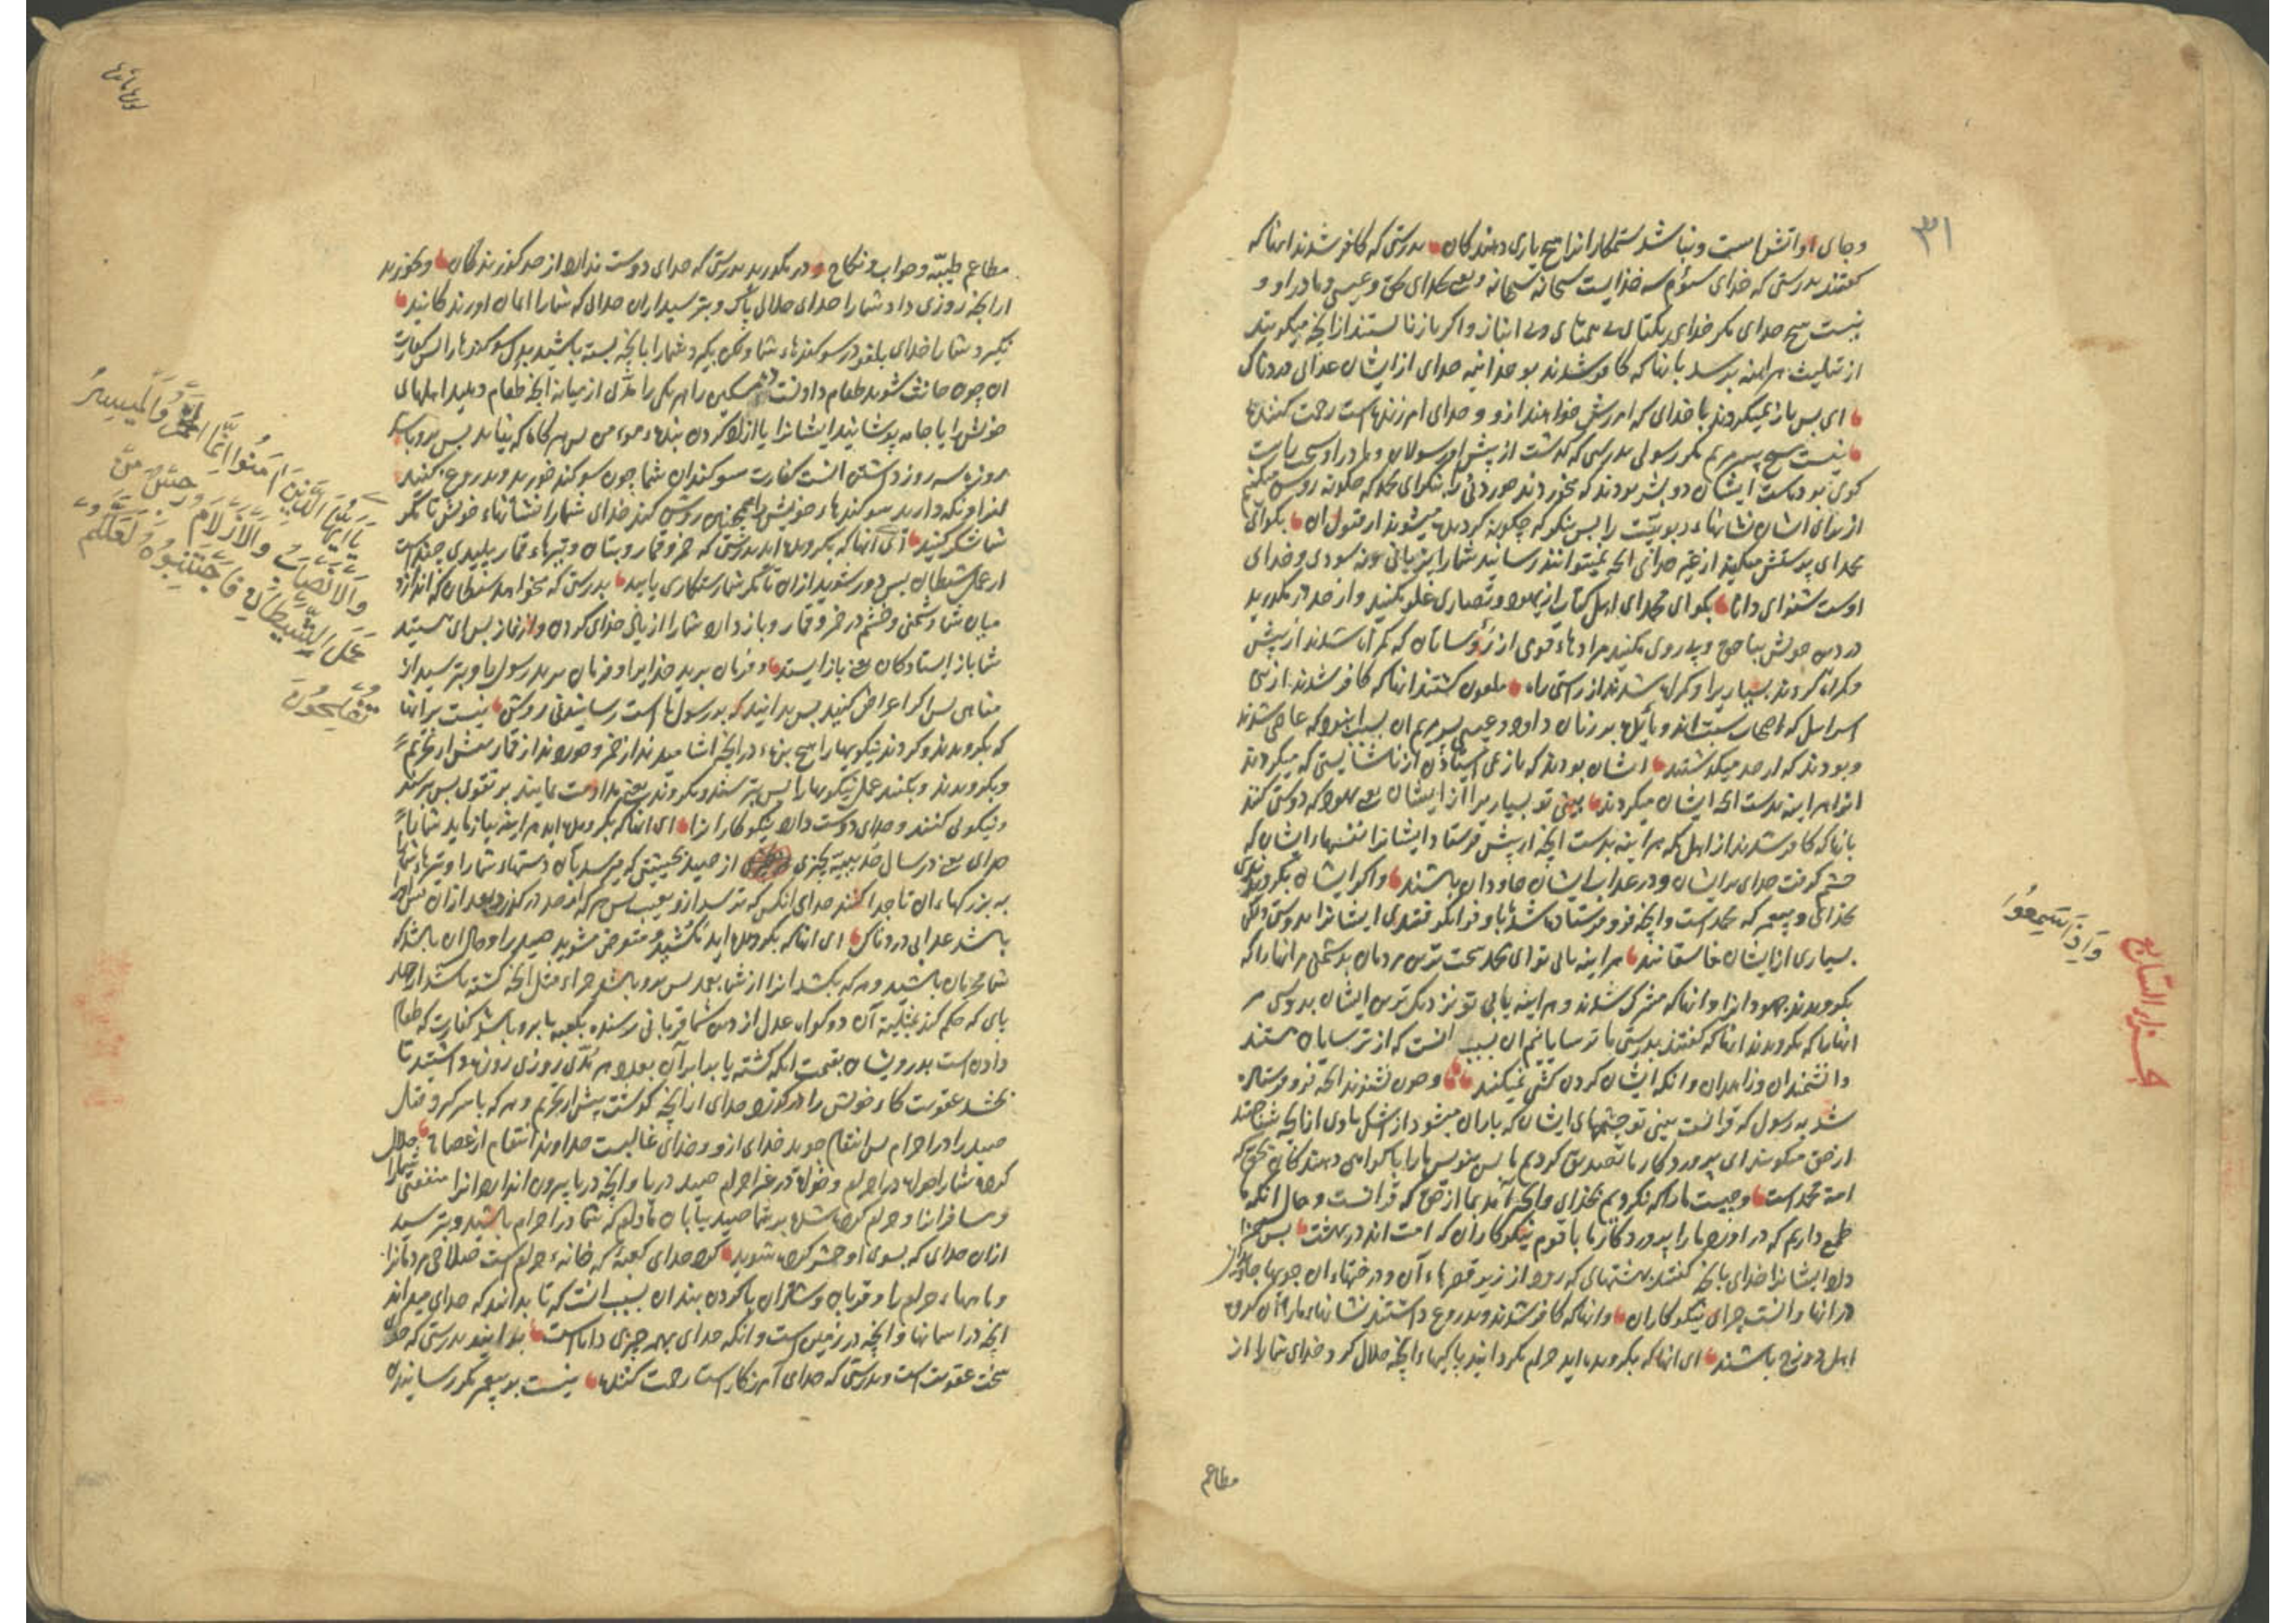 ۳۱
وجای او آتش است ونباشد ستمکارانرا هیچ یاری دهندکان بدرستی که کافر شدند انها که
کفتند بدرستی که خدای سؤم سه خدایست سبحانه
نیست هیچ خدای مکر خدای یکتای بی همتای بی انباز واکر باز نا یستند از انچه میکویند
از تثلیث هراینه برسد بانها که کافر شدند از ایشان عذابی دردناک
ای بس باز نمیکردند با خدای که امرزش خواهند ازو و خدای امرزنده است رحمت کننده
نیست مسیح پسر مریم مکر رسولی بدرستی که کذشت از پیش او رسولان ومادر او
کوی بودست ایشان دو بشر بودند که میخوردند خوردنی را بنکر ای محمد که چکونه روشن میکنیم
از برای ایشان نشانهاء را بس بنکر که چکونه کردیده میشوند از قبول ان بکو ای
محمد ای پرستش میکنید از غیر خدای انچه نمیتوانند رسانید شما را نه زیانی ونه سودی وخدای
اوست شنوای دانا بکو ای محمد ای اهل کتاب از یهود ونصاری غلو مکنید واز حد در مکذرید
در دین خویش بنا حق وپی روی مکنید مرادهاء قومی از رؤسا تان که کمراه شدند از پیش
وکمراه کردند بسیاریرا وکمراه شدند از راستی راه ملعون کشتند انها که کافر شدند از بنی
اسراییل که اصحاب سبت اند بر زبان داود وعیسی پسر مریم ان بسبب انبود که عاصی شدند
وبودند که از حد میکذشتند ایشان بودند که باز نمی ایستادند از ناشایستی که میکردند
انرا هراینه بدست انچه ایشان میکردند بینی تو بسیاریرا از ایشان یعنی یهود که دوستی کنند
بانها که کافر شدند از اهل مکه هراینه بدست انچه از پیش فرستاد ایشانرا نفسهاء ایشان که
خشم کرفت خدای بر ایشان ودر عذاب ایشان جاودان باشند واکر ایشان بکرویدندی
بخدای وپیغمبر که محمد است وانچه فرو فرستاده شد باو فرا نکرفتندی ایشانرا بدوستی ولکن
بسیاری از ایشان فاسقانند هراینه یابی تو ای محمد سخت ترین مردمان بدشمنی مر انها را که
بکرویدند جهودانرا وانها که مشرک شدند وهراینه یابی تو نزدیک ترین ایشان بدوستی مر
انها را که بکرویدند انها که کفتند بدرستی ما ترسایانیم ان بسبب انست که از ترسایان هستند
دانشمندان وزاهدان وانکه ایشان کردن کشی نمیکنند وچون بشنوند انچه فرو فرستاده
شد به رسول که قرانست بینی تو چشمهای ایشان که باران میشود از اشک بادی از انچه شناختند
از حق میکویند ای پروردکار ما تصدیق کردیم ما بس بنویس ما را با کواهی دهندکان بحق که
امة محمد است وچیست ما را که نکرویم بخدای وانچه آمد بما از حق که قرانست وحال انکه
طمع داریم که در اورد ما را پروردکار ما با قوم نیکوکاران که امت اند در بهشت بس جزا
داد ایشانرا خدای بانچه کفتند بهشتهای که رود از زیر قصرهاء آن ودرختهاء ان جویها جاویدان
در انها وانست جزای نیکوکاران وانها که کافر شدند وبدروغ داشتند نشانهاء ما را آن کروه
اهل دوزخ باشند ای انها که بکرویده اید حرام مکردانید پاکیهاء انچه حلال کرد خدای شما را از
مطاعم
وَاِذَا سَمِعُوا
جزء السابع
مطاعم طیبه ونکاح ودر مکذرید بدرستی که خدای دوست ندارد از حد کذرندکان وبخورید
از انچه روزی داد شما را خدای حلالی پاک وبترسید از ان خدای که شما را ایمان اورندکانید
نکیرد شما را خدای بلغو در سوکندهاء شما ولکن بکیرد شما را بانچه بسته باشید بدل سوکندها را بس کفارت
ان چون حانث شوید طعام دادنست ده مسکین را هر یکی را مدی از میانه انچه طعام دهید اهلهای
خویش را یا جامه پوشانید ایشانرا یا ازاد کردن بندهء مومن بس هر کاه که نیابد بس برو باشد
روزه سه روز داشتن انست کفارت سوکندان شما چون سوکند خورید وبدروغ کنید
ونکه دارید سوکندهاء خویش را همچنین روشن کند خدای شما را نشانهاء خویش تا مکر
شما شکر کنید ای آنها که بکرویده اید بدرستی که خمر وقمار وبتان وتیرهاء قمار پلیدی چند است
از عمل شیطان بس دور شوید از ان تا مکر شما رستکاری یابید بدرستی که میخواهد شیطان که اندازد
میان شما دشمنی وخشم در خمر وقمار وباز دارد شما را از یاد خدای کردن واز نماز بس ای هستید
شما باز ایستادکان یعنی باز ایستید وفرمان برید خدایرا وفرمان برید رسول را وبترسید از
مناهی بس اکر اعراض کنید بس بدانید که بر رسول ما است رسانیدنی روشن نیست بر انها
که بکرویدند وکردند نیکویها را هیچ بزهء در انچه اشامیدند از خمر وخوردند از قمار پیش از تحریم
وبکرویدند وبکنند عمل نیکویها را بس بترسند وبکروند یعنی مداومت نمایند بر تقوی بس بترسند
ونیکویی کنند وخدای دوست دارد نیکوکارانرا ای انها که بکرویده اید هراینه بیازماید شما را
خدای یعنی در سال حدیبیه بچیزی از صید بحیثیتی که میرسد بآن دستهاء شما را وتیرهاء شما
به بزرکهاء ان تا جدا کند خدای انکس که ترسد ازو بغیب بس هر که از حد در کذرد بعد از ان بس او را
باشد عذابی دردناک ای انها که بکرویده اید نکشید ومتعرض مشوید صید را وحال ان باشد که
شما محرمان باشید وهر که بکشد انرا از شما بعمد بس برو باشد جزاء مثل انچه کشته باشد از چهار
پای که حکم کند بمثلیت آن دو کواه عدل از دین شما قربانی رسنده بکعبه یا برو باشد کفارت که طعام
دادن است بدرویشان بقیمت انکه کشته یا برابر آن بعدد هر مدی روزی روزه داشتید تا
بچشد عقوبت کار خویش را در کذرد خدای از انچه کذشت پیش از تحریم وهر که باز سر کیرد وقتال
صید را در احرام بس انتقام جوید خدای ازو وخدای غالبست خداوند انتقام از عصاة حلال
کرده شد شما را در احرام ودر غیر احرام صید دریا وانچه دریا بیرون اندازد انرا منفعتی شما را
ومسافرانرا وحرام کرده شد بر شما صید بیابان مادام که شما در احرام باشید وبترسید
از ان خدای که بسوی او حشر کرده شوید کرد خدای کعبه را که خانهء حرام است صلاحی مردمانرا
وماههاء حرام را وقربان وشتران با کردن بند ان بسبب انست که تا بدانند که خدای میداند
انچه در اسمانها وانچه در زمین است وانکه خدای بهمه چیزی داناست بدانید بدرستی که خدای
سخت عقوبت است وبدرستی که خدای آمرزکار است رحمت کننده نیست بر پیغمبر مکر رسانیدن
يَا اَيُّهَا الَّذِينَ اٰمَنُوا اِنَّمَا الْخَمْرُ وَالْمَيْسِرُ
وَالْاَنْصَابُ وَالْاَزْلَامُ رِجْسٌ مِنْ
عَمَلِ الشَّيْطَانِ فَاجْتَنِبُوهُ لَعَلَّكُمْ
تُفْلِحُونَ